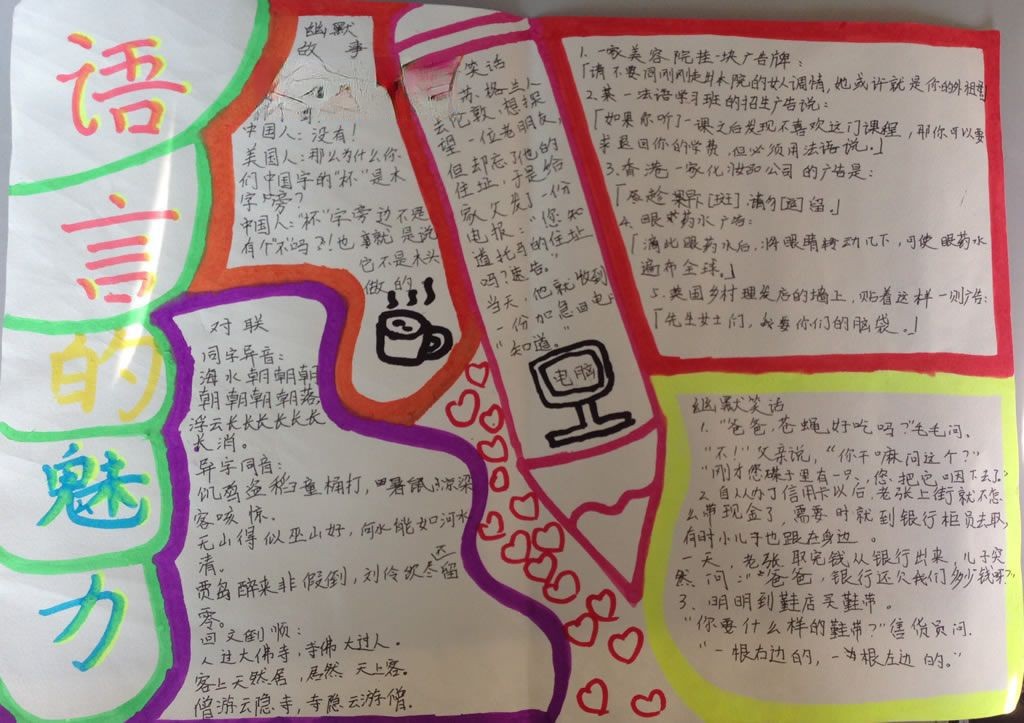 语
言
的
魅
力
幽默
故 事
中国人：没有！
美国人：那么为什么你
们中国字的“杯”是木
字旁？
中国人：“杯”字旁边不是
有个“不”吗？！也就是说
它不是木头
做的
笑话
苏格兰人
去伦敦，想探
望一位老朋友，
但却忘了他的
住址，于是给
家父发了一份
电报：“您知
道托马的住址
吗？速告。”
当天，他就收到
一份加急回电
“知道。”
电脑
1. 一家美容院挂一块广告牌：
「请不要同刚刚走出本院的女人调情，她或许就是你的外祖母
2. 某一法语学习班的招生广告说：
「如果你听了一课之后发现不喜欢这门课程，那你可以要
求退回你的学费，但必须用法语说。」
3. 香港一家化妆品公司的广告是：
「趁早下[斑]，请勿[逗]留。」
4. 眼药水广告：
「滴此眼药水后，将眼睛转动几下，可使眼药水
遍布全球。」
5. 英国乡村理发店的墙上，贴着这样一则广告：
「先生女士们，我要你们的脑袋。」
对联
同字异音：
海水朝朝朝朝
朝朝朝朝落，
浮云长长长长长长
长消。
异字同音：
饥鸡盗稻童桶打，暑鼠凉梁
客咳惊。
无山得似巫山好，何水能如河水
清。
贾岛醉来非假倒，刘伶饮尽还留
零。
回文倒顺：
人过大佛寺，寺佛大过人。
客上天然居，居然天上客。
僧游云隐寺，寺隐云游僧.
幽默笑话
1. “爸爸，苍蝇好吃吗？”毛毛问.
“不！”父亲说，“你干嘛问这个？”
“刚才您碟子里有一只，您把它咽下去了。”
2. 自从办了信用卡以后，老张上街就不怎
么带现金了，需要时就到银行柜员去取，
有时小儿子也跟在身边。
一天，老张取完钱从银行出来，儿子突
然问：“爸爸，银行还欠我们多少钱呀？”
3、明明到鞋店买鞋带。
“你要什么样的鞋带？”售货员问.
“一根右边的，一根左边的。”